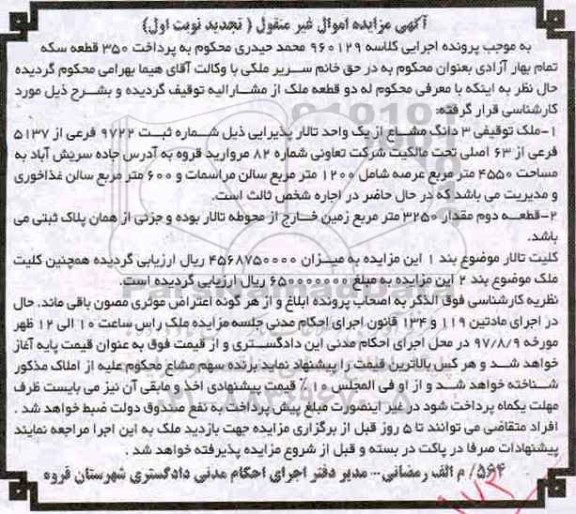 آگهی مزایده اموال غیر منقول ( تجدید نوبت اول)
به موجب پرونده اجرایی کلاسه ۹۶۰۱۲۹ محمد حیدری محکوم به پرداخت ۳۵۰ قطعه سکه
تمام بهار آزادی بعنوان محکوم به در حق خانم سریر ملکی با وکالت آقای هیما بهرامی محکوم گردیده
حال نظر به اینکه با معرفی محکوم له دو قطعه ملک از مشارالیه توقیف گردیده و بشرح ذیل مورد
کارشناسی قرار گرفته:
۱-ملک توقیفی ۳ دانگ مشاع از یک واحد تالار پذیرایی ذیل شماره ثبت ۹۷۲۲ فرعی از ۵۱۳۷
فرعی از ۶۳ اصلی تحت مالکیت شرکت تعاونی شماره ۸۲ مروارید قروه به آدرس جاده سریش آباد به
مساحت ۴۵۵۰ متر مربع عرصه شامل ۱۲۰۰ متر مربع سالن مراسمات و ۶۰۰ متر مربع سالن غذاخوری
و مدیریت می باشد که در حال حاضر در اجاره شخص ثالث است.
۲-قطعه دوم مقدار ۳۲۵۰ متر مربع زمین خارج از محوطه تالار بوده و جزئی از همان پلاک ثبتی می
باشد.
کلیت تالار موضوع بند ۱ این مزایده به میزان ۴۵۶۸۷۵۰۰۰۰ ریال ارزیابی گردیده همچنین کلیت
ملک موضوع بند ۲ این مزایده به مبلغ ۶۵۰۰۰۰۰۰۰ ریال ارزیابی گردیده است.
نظریه کارشناسی فوق الذکر به اصحاب پرونده ابلاغ و از هر گونه اعتراض موثری مصون باقی ماند. حال
در اجرای مادتین ۱۱۹ و ۱۳۴ قانون اجرای احکام مدنی جلسه مزایده ملک راس ساعت ۱۰ الی ۱۲ ظهر
مورخه ۹۷/۸/۹ در محل اجرای احکام مدنی این دادگستری و از قیمت فوق به عنوان قیمت پایه آغاز
خواهد شد و هر کس بالاترین قیمت را پیشنهاد نماید برنده سهم مشاع محکوم علیه از املاک مذکور
شناخته خواهد شد و از او فی المجلس ۱۰ ٪ قیمت پیشنهادی اخذ و مابقی آن نیز می بایست ظرف
مهلت یکماه پرداخت شود در غیر اینصورت مبلغ پیش پرداخت به نفع صندوق دولت ضبط خواهد شد .
افراد متقاضی می توانند تا ۵ روز قبل از برگزاری مزایده جهت بازدید ملک به این اجرا مراجعه نمایند
پیشنهادات صرفا در پاکت در بسته و قبل از شروع مزایده پذیرفته خواهد شد .
۵۶۴/ م الف رمضانی... مدیر دفتر اجرای احکام مدنی دادگستری شهرستان قروه